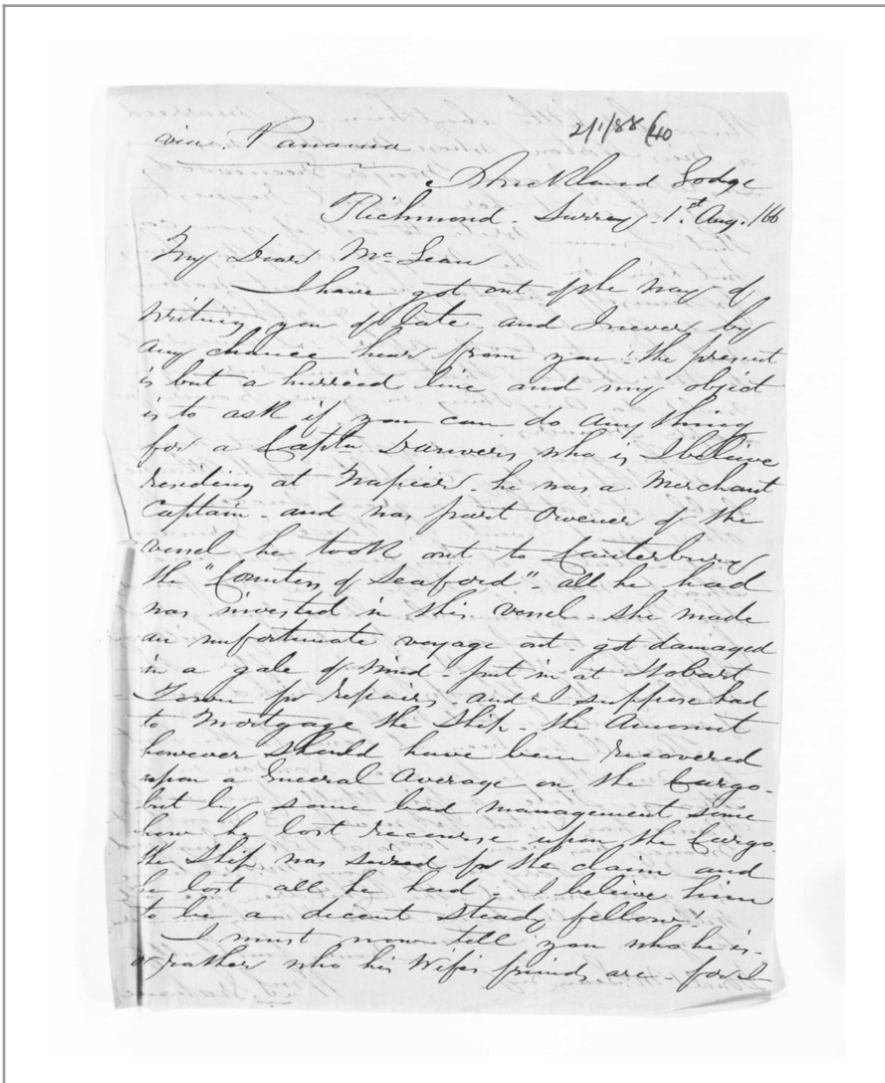 via. Panama
2/1/88 (40
Strickland Lodge
Richmond. Surrey. 1st. Aug. /66
My Dear McLean
I have got out of the way of
writing you of late and I never by
any chance hear from you: the present
is but a hurried line and my object
is to ask if you can do anything
for a Captn Danvers who is I believe
residing at Napier. he was a Merchant
Captain. and was part Owener of the
vessel he took out to Canterbury
the "Countess of Seaford". all he had
was invested in this vessel. she made
an unfortunate voyage out. got damaged
in a gale of wind. put in at Hobart
Town for repairs. and I suppose had
to Mortgage the Ship. the Amount
however should have been recovered
upon a General Average on the Cargo.
but by some bad management some
how he lost recourse upon the Cargo.
the Ship was seized for the claim and
he lost all he had. I believe him
to be a decent steady fellow.
I must now tell you who he is.
or rather who his Wife's friends are. for I